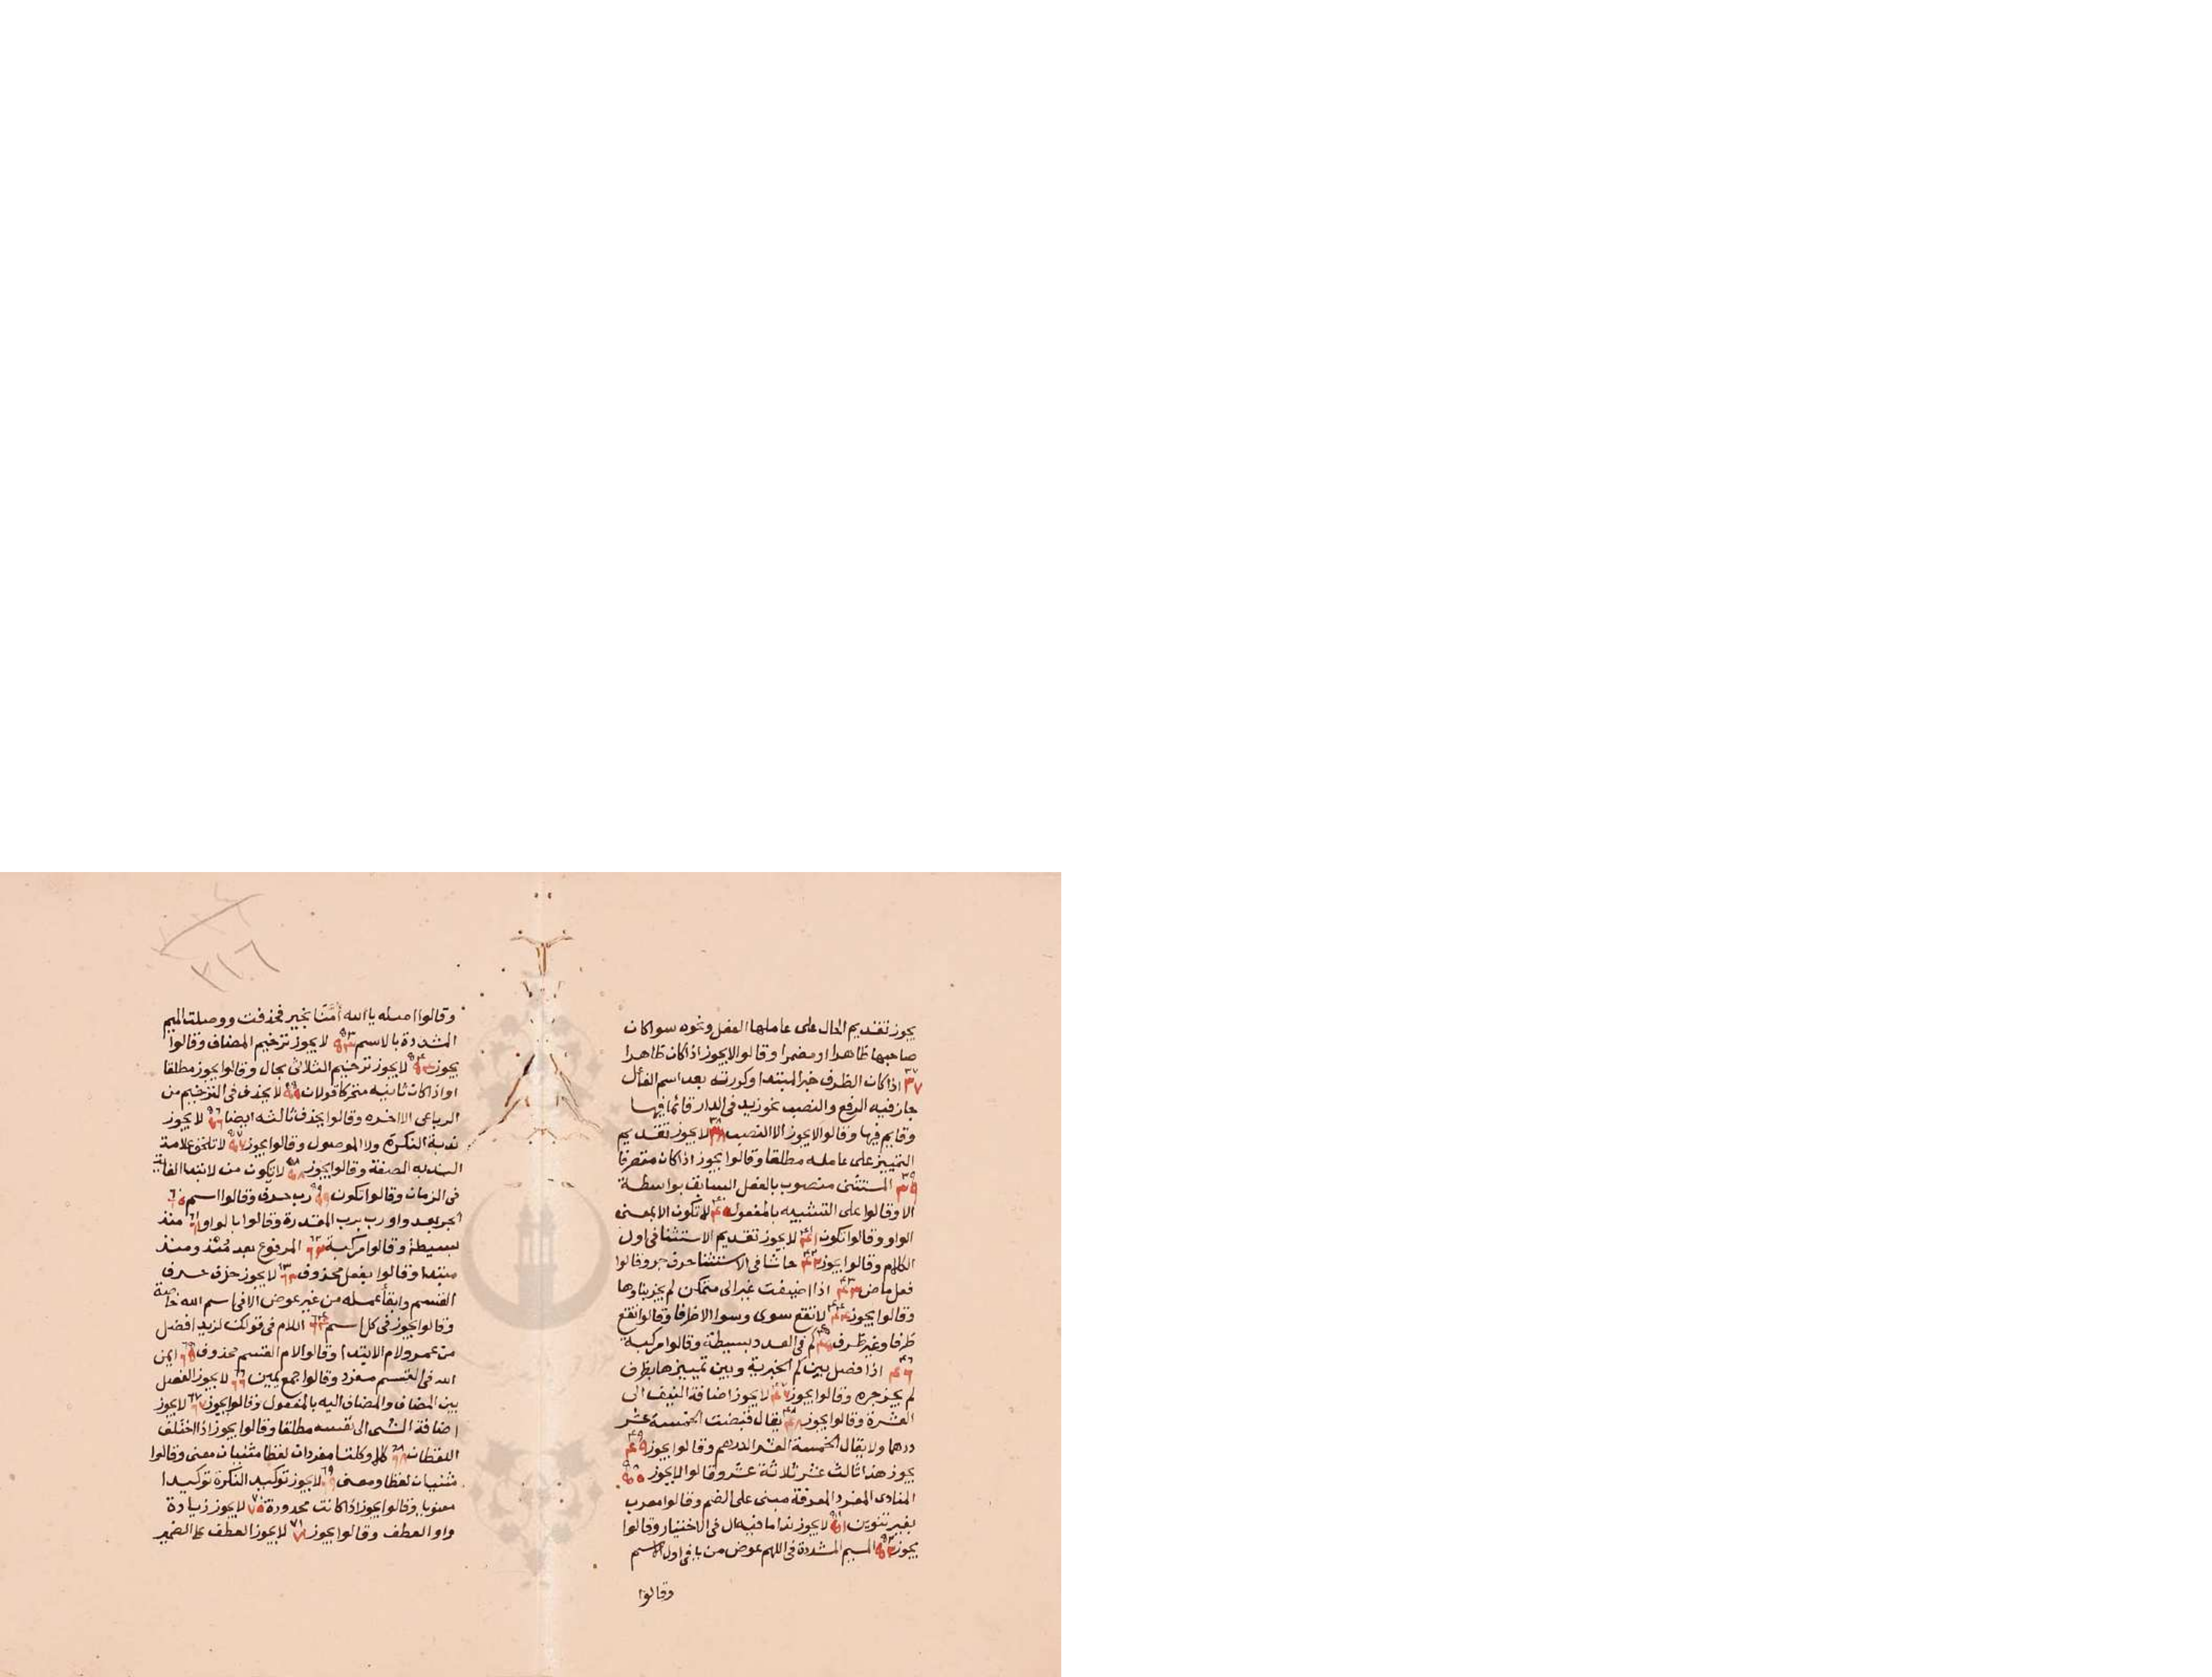 يجوز تقديم الحال على عاملها الفعل ونحوه سوا كان
صاحبها ظاهرا او مضمرا وقالوا لا يجوز اذا كان ظاهرا
٣٧ اذا كان الظرف خبر المبتدا وكررته بعد اسم الفاعل
جاز فيه الرفع والنصب نحو زيد فى الدار قائما فيها
وقايم فيها وقالوا لا يجوز الا النصب ٣٨ لا يجوز تقديم
التمييز على عامله مطلقا وقالوا يجوز اذا كان متصرفا
٣٩ المستثنى منصوب بالفعل السابق بواسطة
الا وقالوا على التشبيه بالمفعول ٤٠ لا تكون الا بمعنى
الواو وقالوا تكون ٤١ لا يجوز تقديم الاستثنا فى اول
الكلام وقالوا يجوز ٤٢ حاشا فى الاستثنا حرف جر وقالوا
فعل ماض ٤٣ اذا اضيفت غير الى متمكن لم يجز بناوها
وقالوا يجوز ٤٤ لا تقع سوى وسوا الا ظرفا وقالوا تقع
ظرفا وغير ظرف ٤٥ كم فى العدد بسيطة وقالوا مركبة
٤٦ اذا فصل بين كم الخبرية وبين تمييزها بظرف
لم يجز جره وقالوا يجوز ٤٧ لا يجوز اضافة النيف الى
العشرة وقالوا يجوز ٤٨ يقال قبضت الخمسة عشر
درهما ولا يقال الخمسة العشر الدرهم وقالوا يجوز ٤٩
يجوز هذا ثالث عشر ثلاثة عشر وقالوا لا يجوز ٥٠
المنادى المفرد المعرفة مبنى على الضم وقالوا معرب
بغير تنوين ٥١ لا يجوز ندا ما فيه ال فى الاختيار وقالوا
يجوز ٥٢ الميم المشددة فى اللهم عوض من يا فى اول الاسم
وقالوا
٣١٦
وقالوا اصله يا الله أمَّنا بخير فحذفت ووصلت الميم
المشددة بالاسم ٥٣ لا يجوز ترخيم المضاف وقالوا
يجوز ٥٤ لا يجوز ترخيم الثلاثى بحال وقالوا يجوز مطلقا
او اذا كان ثانيه متحركا قولان ٥٥ لا يحذف فى الترخيم من
الرباعى الا اخره وقالوا يحذف ثالثه ايضا ٥٦ لا يجوز
ندبة النكرة ولا الموصول وقالوا يجوز ٥٧ لا تلحق علامة
الندبه الصفة وقالوا يجوز ٥٨ لا تكون من لابتدا الغاية
فى الزمان وقالوا تكون ٥٩ رب حرف وقالوا اسم ٦٠
الجر بعد واو رب برب المقدرة وقالوا بالواو ٦١ منذ
بسيطة وقالوا مركبة ٦٢ المرفوع بعد مُنْذ ومنذ
مبتدا وقالوا بفعل محذوف ٦٣ لا يجوز حذف حرف
القسم وابقا عمله من غير عوض الا فى اسم الله خاصة
وقالوا يجوز فى كل اسم ٦٤ اللام فى قولك لزيد افضل
من عمرو لام الابتدا وقالوا لام القسم محذوف ٦٥ ايمن
الله فى القسم مفرد وقالوا جمع يمين ٦٦ لا يجوز الفصل
بين المضاف والمضاف اليه بالمفعول وقالوا يجوز ٦٧ لا يجوز
اضافة الشى الى نفسه مطلقا وقالوا يجوز اذا اختلف
اللفظان ٦٨ كلا وكلتا مفردان لفظا مثنيان معنى وقالوا
مثنيان لفظا ومعنى ٦٩ لا يجوز توكيد النكرة توكيدا
معنويا وقالوا يجوز اذا كانت محدودة ٧٠ لا يجوز زيادة
واو العطف وقالوا يجوز ٧١ لا يجوز العطف على الضمير